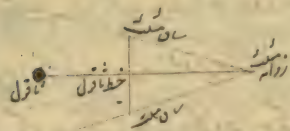 ساق مثلث
زاویه مثلث
خط شاقول
شاقول
ساق مثلث